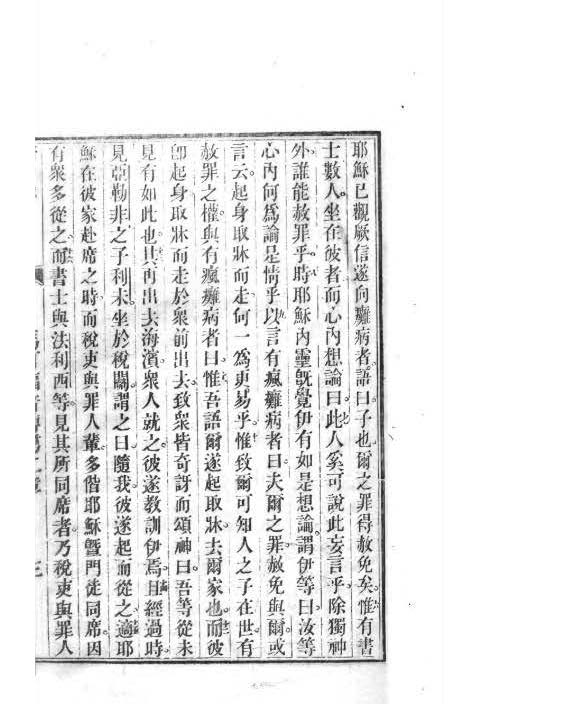 耶穌已觀厥信遂向癱病者語曰子也爾之罪得赦免矣惟有書
士數人坐在彼者而心內想論曰此人奚可說此妄言乎除獨神
外誰能赦罪乎時耶穌內靈旣覺伊有如是想論謂伊等曰汝等
心內何爲論是情乎以言有瘋癱病者曰夫爾之罪赦免與爾或
言云起身取牀而走何一爲更易乎惟致爾可知人之子在世有
赦罪之權與有瘋癱病者曰惟吾語爾遂起取牀去爾家也而彼
卽起身取牀而走於衆前出去致衆皆奇訝而頌神曰吾等從未
見有如此也其再出去海濱衆人就之彼遂教訓伊焉且經過時
見亞勒非之子利未坐於稅關謂之曰隨我彼遂起而從之適耶
穌在彼家赴席之時而稅吏與罪人輩多偕耶穌曁門徒同席因
有衆多從之而書士與法利西等見其所同席者乃稅吏與罪人